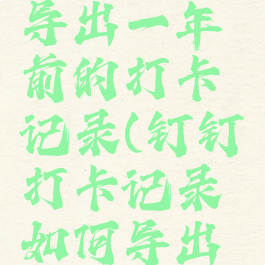 导出一年
前的打卡
记录(钉钉
打卡记录
如何导出